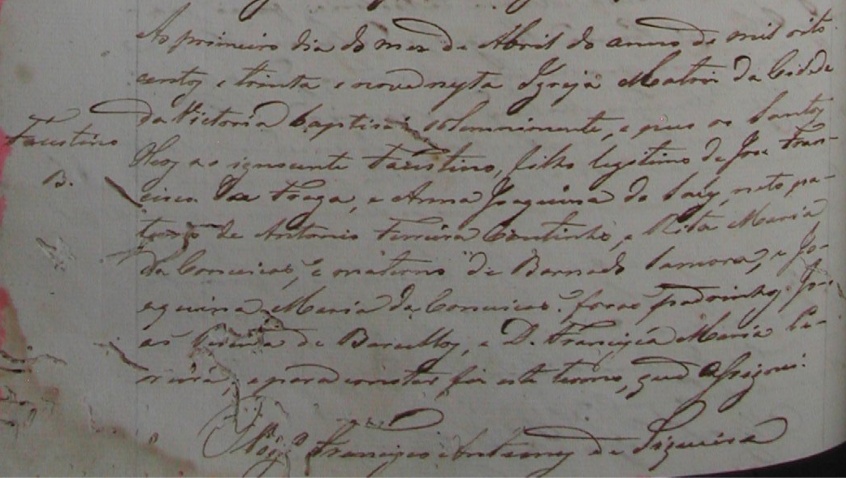 Ao primeiro dia do mez de Abril do anno de mil oito
centos e trinta e nove nesta Igreja Matriz da Cidade
da Victoria baptisei solemnimente, e puz os Santos
Faustino
B.
Oleos ao ignocente Faustino, filho legitimo de Jose Fran-
cisco da Fraga, e Anna Joaquina do , neto pa-
terno de Antonio Ferreira Coutinho, e Rita Maria
da Conceicao, e materno de Bernado , e Jo-
aquina Maria da Conceicao: forao padrinhos Jo-
ao Pereira de Barcellos, e D. Francisca Maria
, e para constar fiz este termo, que assignei.
Francisco Antunes de Siqueira